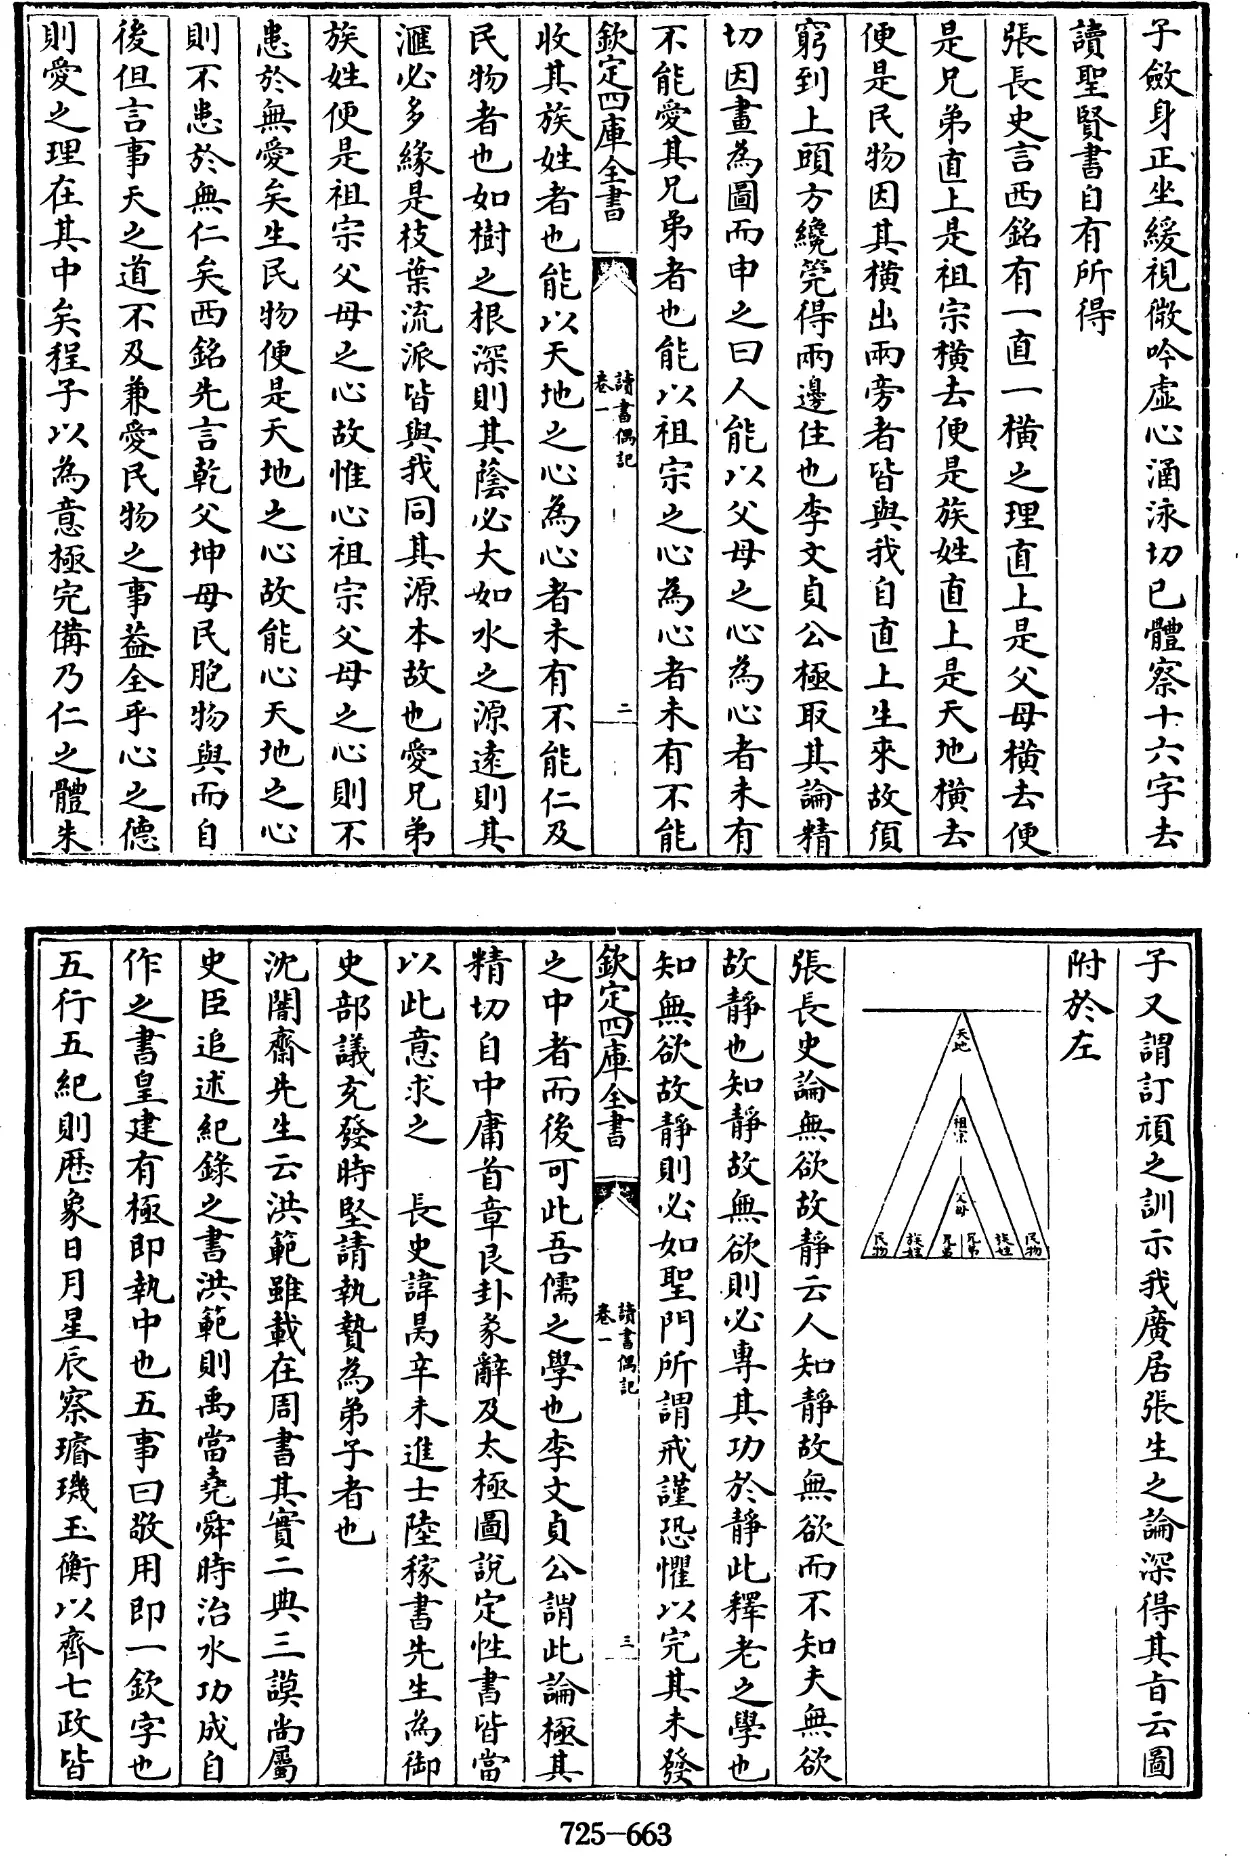 子斂身正坐緩視微吟虛心涵泳切已體察十六字去
讀聖賢書自有所得
張長史言西銘有一直一橫之理直上是父母橫去便
是兄弟直上是祖宗橫去便是族姓直上是天地橫去
便是民物因其橫出兩旁者皆與我自直上生來故須
窮到上頭方纔筦得兩邊住也李文貞公極取其論精
切因畫為圖而申之曰人能以父母之心為心者未有
不能愛其兄弟者也能以祖宗之心為心者未有不能
欽定四庫全書
讀書偶記
卷一
二
收其族姓者也能以天地之心為心者未有不能仁及
民物者也如樹之根深則其蔭必大如水之源遠則其
滙必多緣是枝葉流派皆與我同其源本故也愛兄弟
族姓便是祖宗父母之心故惟心祖宗父母之心則不
患於無愛矣生民物便是天地之心故能心天地之心
則不患於無仁矣西銘先言乾父坤母民胞物與而自
後但言事天之道不及兼愛民物之事益全乎心之德
則愛之理在其中矣程子以為意極完備乃仁之體朱
子又謂訂頑之訓示我廣居張生之論深得其旨云圖
附於左
天地
祖宗
父母
民物
族姓
兄弟
兄弟
族姓
民物
張長史論無欲故靜云人知靜故無欲而不知夫無欲
故靜也知靜故無欲則必專其功於靜此釋老之學也
知無欲故靜則必如聖門所謂戒謹恐懼以完其未發
欽定四庫全書
讀書偶記
卷一
三
之中者而後可此吾儒之學也李文貞公謂此論極其
精切自中庸首章艮卦彖辭及太極圖說定性書皆當
以此意求之 長史諱昺辛未進士陸稼書先生為御
史部議充發時堅請執贄為弟子者也
沈闇齋先生云洪範雖載在周書其實二典三謨尚屬
史臣追述紀錄之書洪範則禹當堯舜時治水功成自
作之書皇建有極即執中也五事曰敬用即一欽字也
五行五紀則厯象日月星辰察璿璣玉衡以齊七政皆
725-663